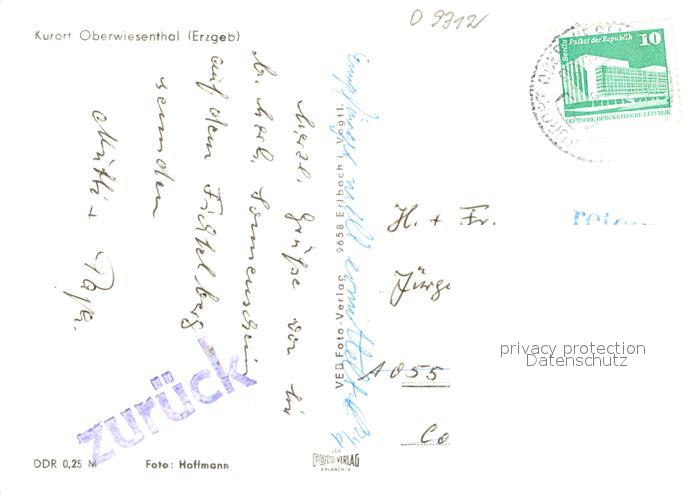 O 9312
Kurort Oberwiesenthal (Erzgeb)
Berlin Palast der Republik 10
DEUTSCHE DEMOKRATISCHE REPUBLIK
herzl. Grüße von hier
b. herrl. Sonnenschein
auf dem Fichtelberg
senden
Mutti + Papa.
Empfänger nicht ermittelt
VEB Foto-Verlag 9658 Erlbach i. Vogtl.
H. + Fr.
Jürge
A 055
Co
zurück
privacy protection
Datenschutz
DDR 0,25 M
Foto: Hoffmann
FOTO VERLAG
ERLBACH-V